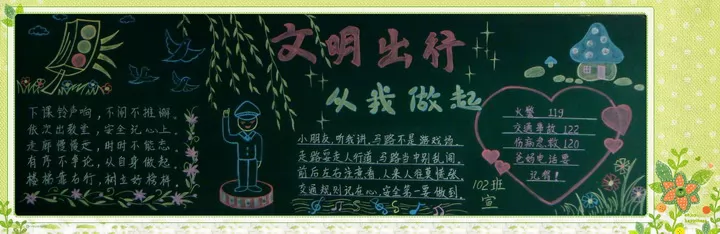 文明出行
从我做起
下课铃声响，不闹不推挪。
依次出教室，安全记心上。
走廊慢慢走，时时不能忘。
有序不争论，从自身做起。
楼梯靠右行，树立好榜样。
小朋友，听我讲，马路不是游戏场。
走路要走人行道，马路当中别乱闯。
前后左右注意看，人来人往莫慌张。
交通规则记在心，安全第一要做到。
火警 119
交通事故 122
伤病急救 120
爸妈电话要
记得！
102班
宣